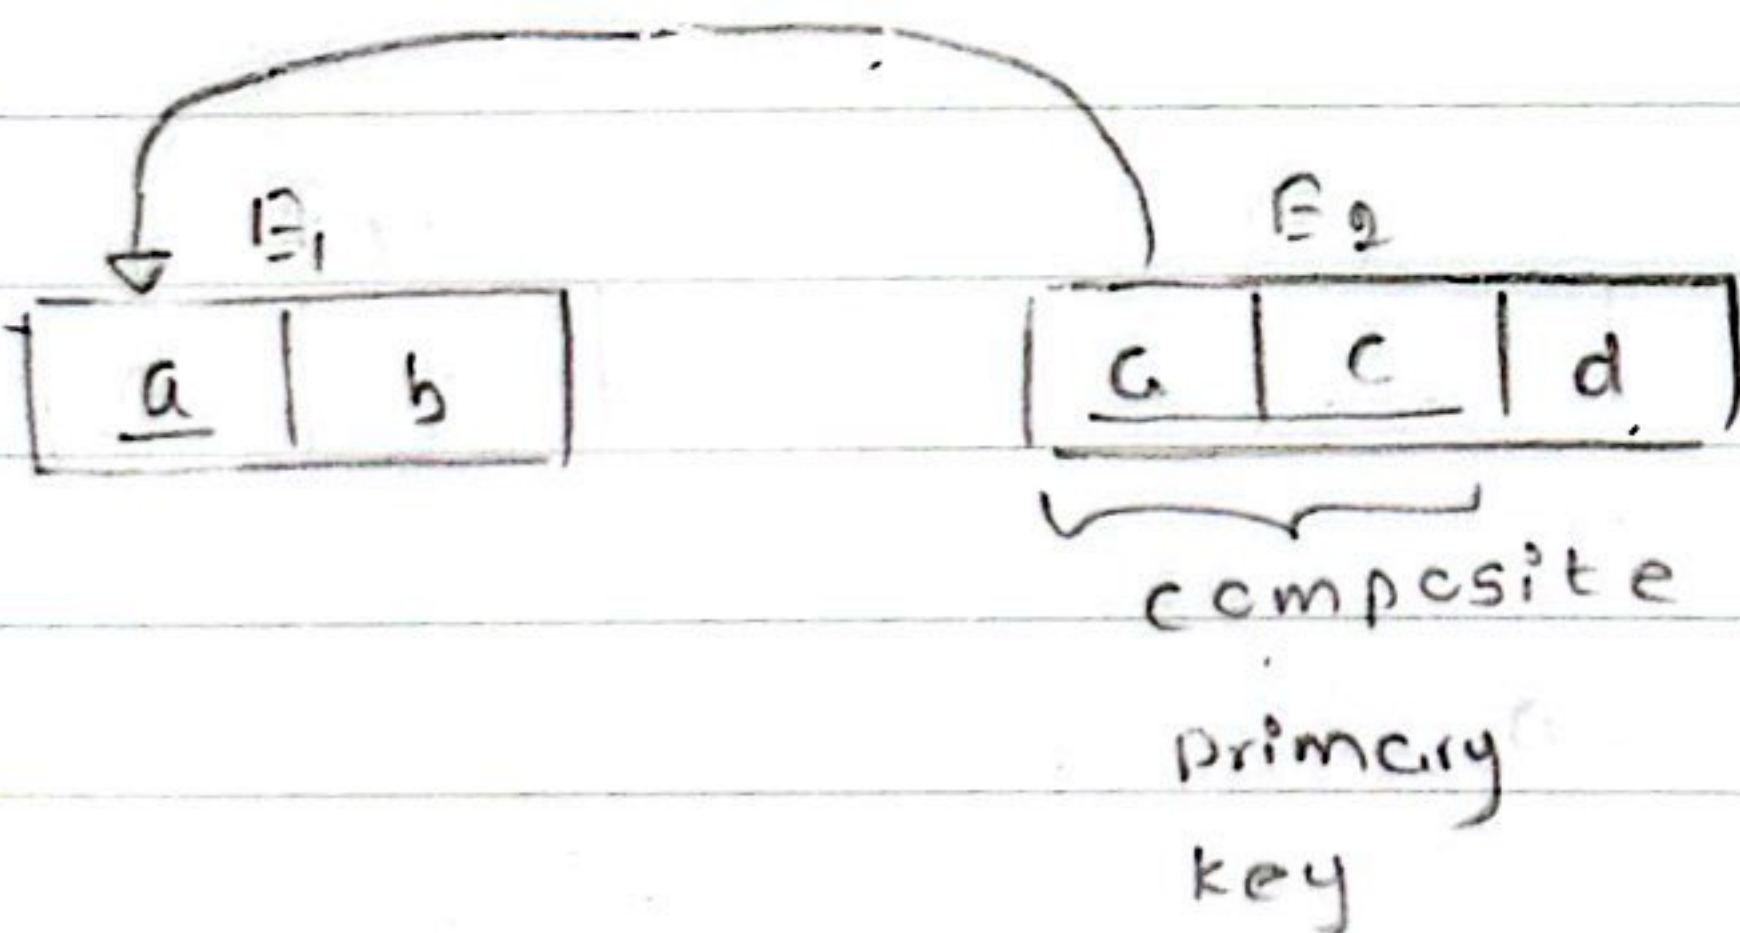 E1 E2
a b a c d
composite
primary
key